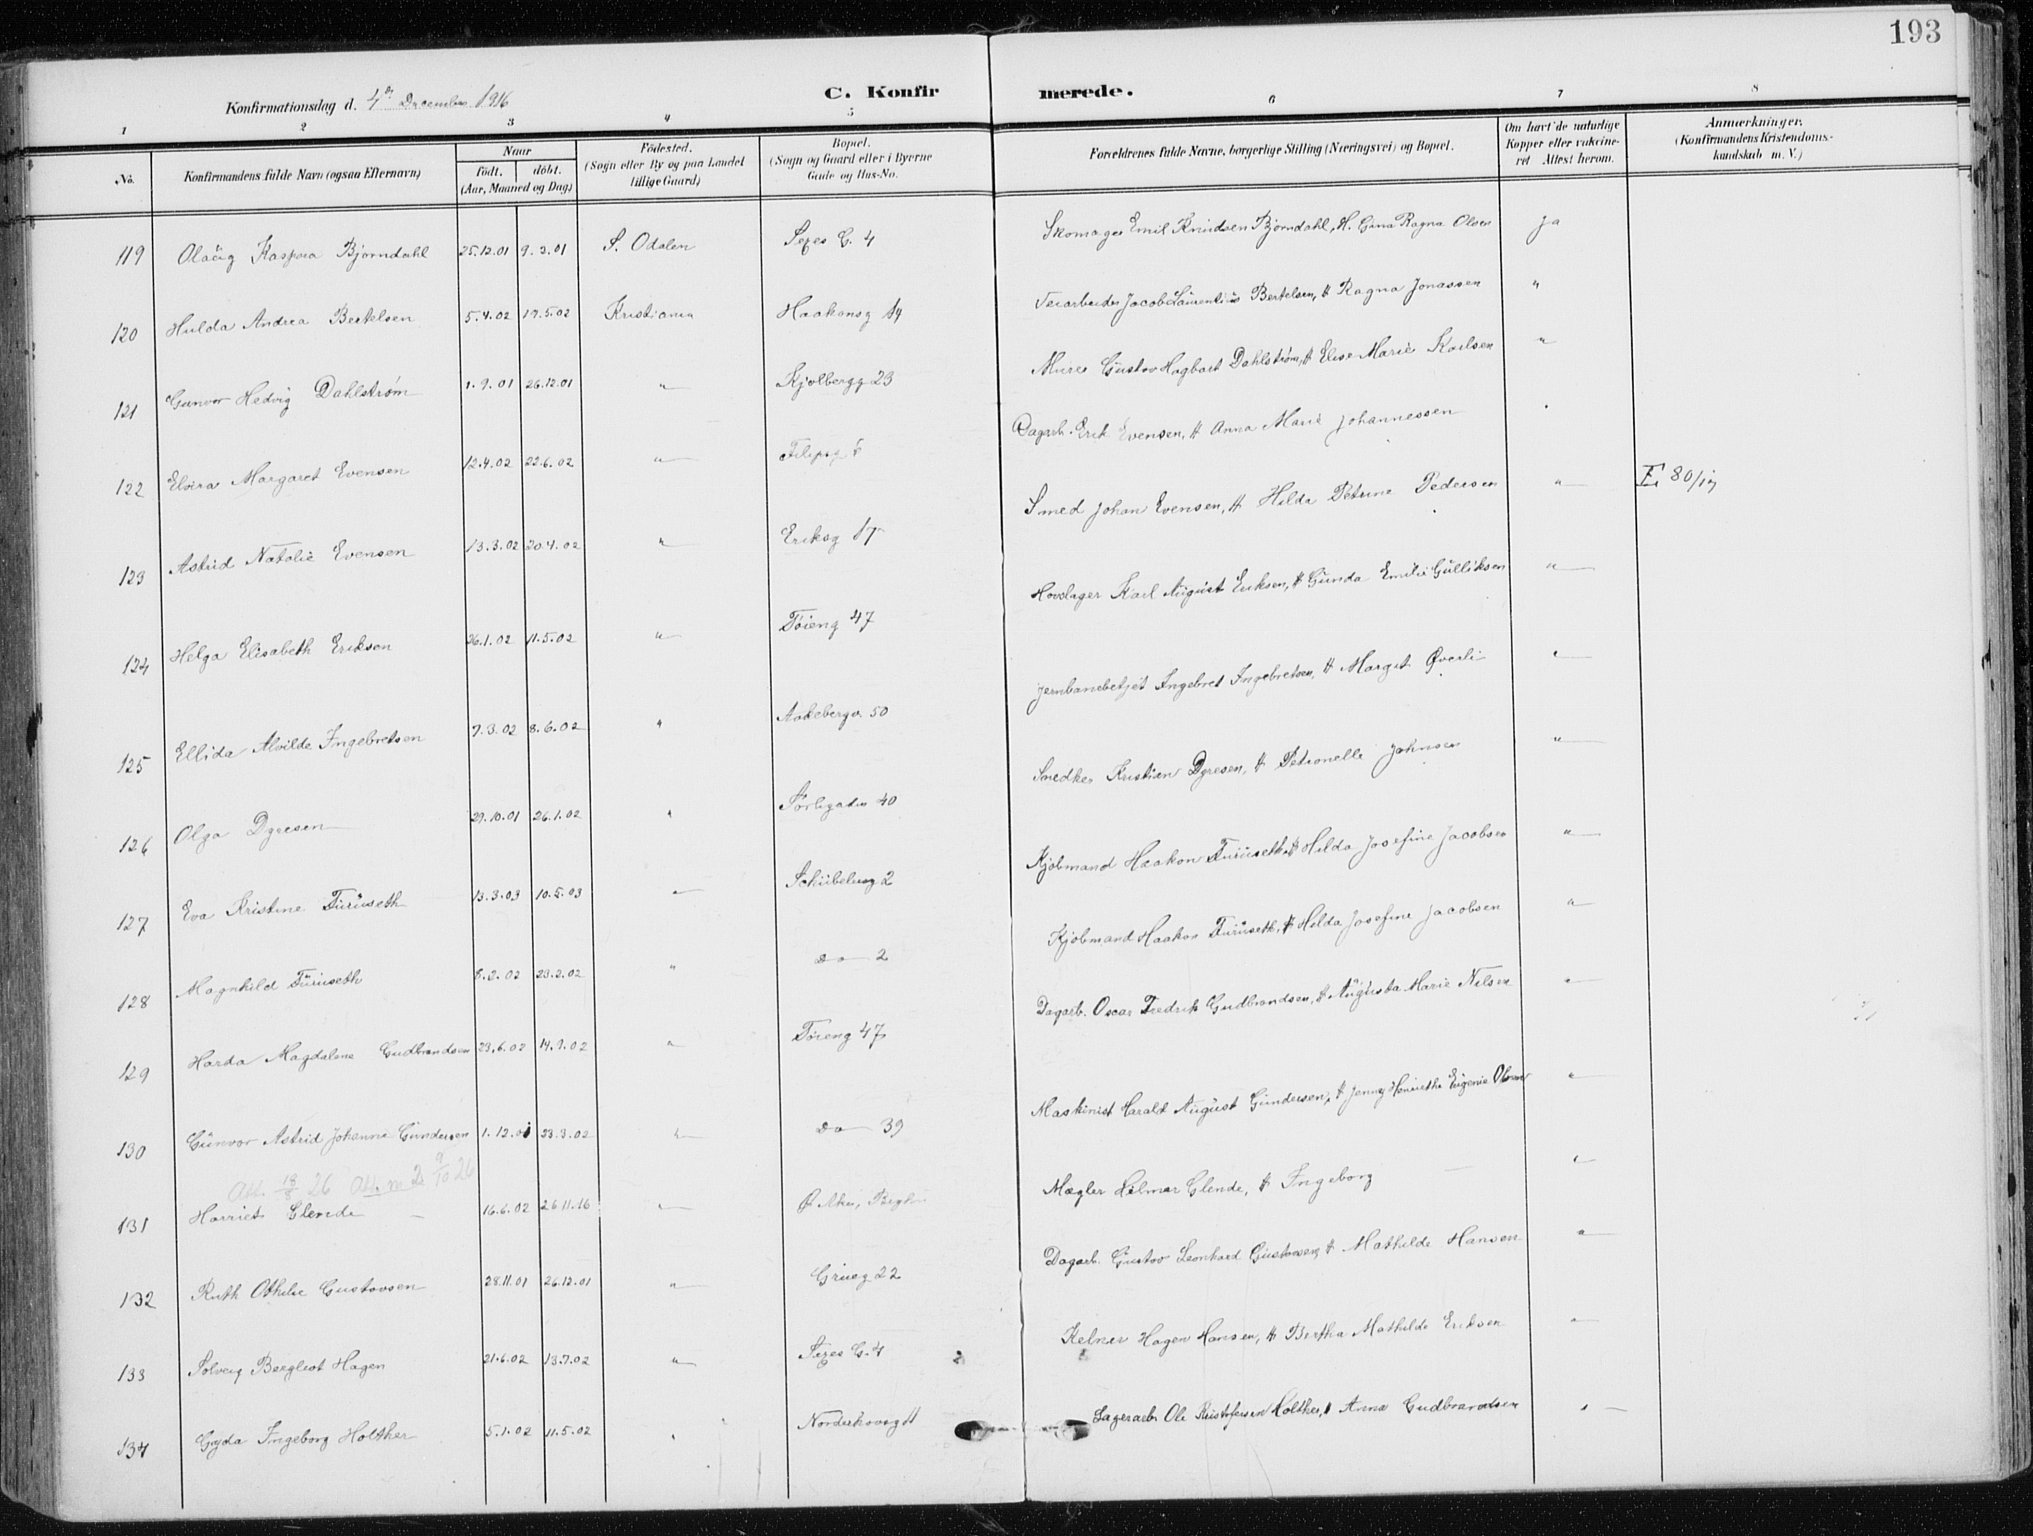 193
Konfirmationsdag d. 4de December 1916
C. Konfirmerede.
1 2 3 4 5 6 7 8
No. Konfirmandens fulde Navn (ogsaa Efternavn) Naar födt. döbt. (Aar, Maaned og Dag) Födested. (Sogn eller By og paa Landet tillige Gaard) Bopæl. (Sogn og Gaard eller i Byerne Gade og Hus-No. Forældrenes fulde Navne, borgerlige Stilling (Næringsvei) og Bopæl. Om havt de naturlige Kopper eller vakcineret. Attest herom. Anmerkninger. (Konfirmandens Kristendomskundskab m. V.)
119 Olaug Kaspara Bjørndahl 25.12.01 9.3.01 S. Odalen Sexes G. 4 Skomager Emil Knudsen Bjørndahl, H. Gina Ragna Olsen Ja
120 Hulda Andrea Bertelsen 5.4.02 19.5.02 Kristiania Haakonsg 14 Veiarbeider Jacob Laurentius Bertelsen, H Ragna Jonassen "
121 Gunvor Hedvig Dahlstrøm 1.9.01 26.12.01 " Kjølbergg 23 Murer Gustav Hagbart Dahlstrøm, H Elise Marie Karlsen "
122 Elvira Margaret Evensen 12.4.02 22.6.02 " Filipsg Dagarb. Erik Evensen, H Anna Marie Johannessen "
123 Astrid Natalie Evensen 13.3.02 20.4.02 " Eriksg 17 Smed Johan Evensen, H Hilda Petrine Pedersen " E. 80/17
124 Helga Elisabeth Eriksen 26.1.02 11.5.02 " Tøieng 47 Hovslager Karl August Eriksen, H Gunda Emilie Gulliksen "
125 Ellida Alvilde Ingebretsen 7.3.02 8.6.02 " Aakebergv. 50 Jernbanebetjet Ingebret Ingebretsen, H Margit Øverli "
126 Olga Dyresen 29.10.01 26.1.02 " Sørligaden 40 Snedker Kristian Dyresen, H Petronelle Johnsen "
127 Eva Kristine Furuseth 13.3.03 10.5.03 " Schübelersg 2 Kjøbmand Haakon Furuseth, H Hilda Josefine Jacobsen "
128 Magnhild Furuseth 8.2.02 23.2.02 " Do 2 Kjøbmand Haakon Furuseth, H Hilda Josefine Jacobsen "
129 Harda Magdalene Gudbrandsen 23.6.02 14.9.02 " Tøieng 47 Dagarb. Oscar Fredrik Gudbrandsen, H Augusta Marie Nilsen "
130 Gunvor Astrid Johanne Gundersen 1.12.01 23.3.02 " Do 39 Maskinist Harald August Gundersen, H Jenny Henriethe Eugenie Olsen "
Att. 18/8 26 Att. m 2 9/10 26
131 Harriet Glende 16.6.02 26.11.16 " Ø Aker, Bryn Mægler Hilmar Glende, H Ingeborg "
132 Ruth Othilie Gustavsen 28.11.01 26.12.01 " Grueg 22 Dagarb. Gustav Leonhard Gustavsen, H Mathilde Hansen "
133 Solveig Bergliot Hagen 21.6.02 13.7.02 " Sexes G. 4 Kelner Hagen Hansen, H Bertha Mathilde Eriksen "
134 Gyda Ingeborg Holther 5.1.02 11.5.02 " Norderhovsg 11 Lagerarb Ole Kristofersen Holther, H Anna Gudbrandsen "